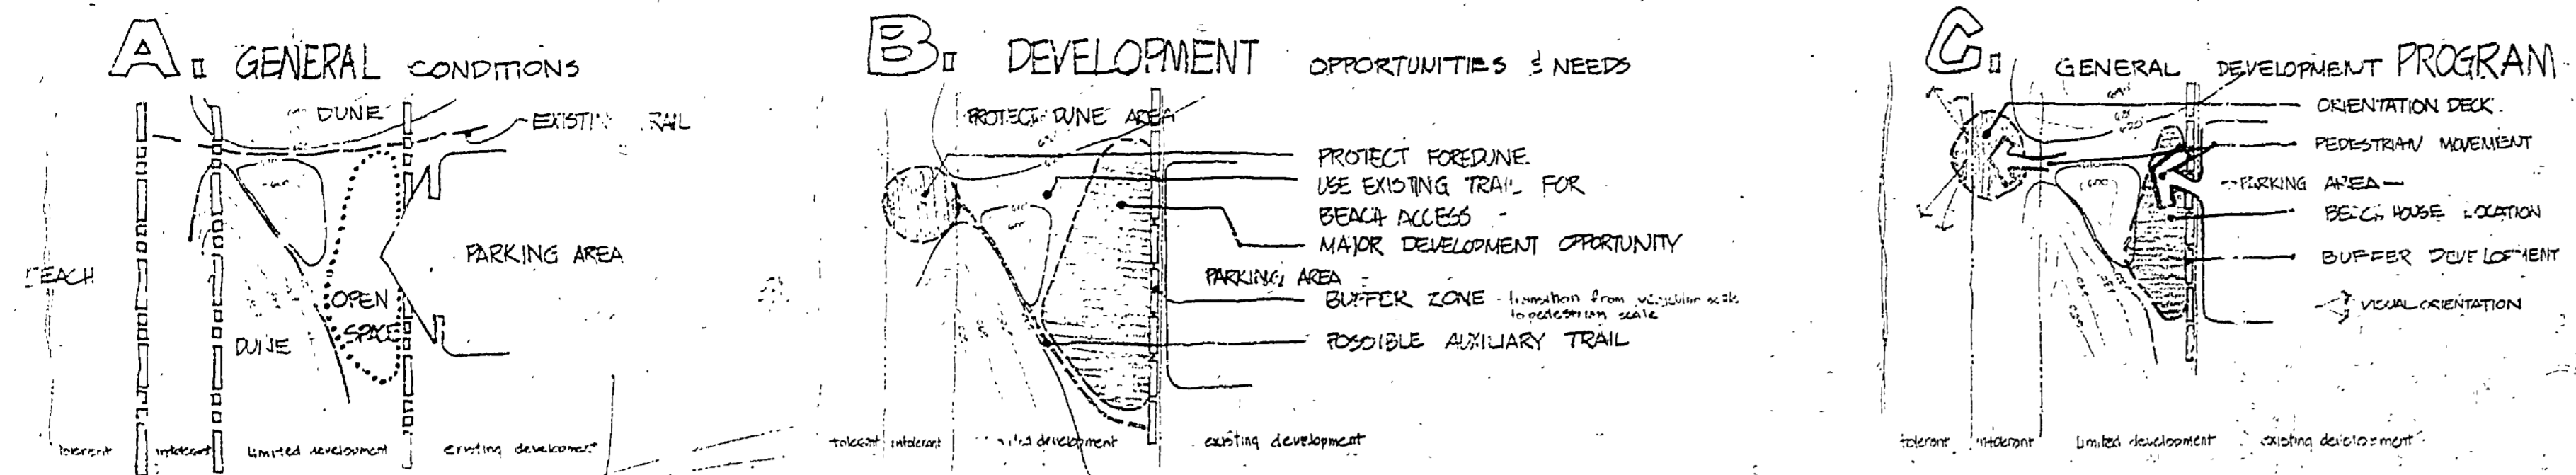 A. GENERAL CONDITIONS
DUNE
EXISTING TRAIL
BEACH
PARKING AREA
OPEN
SPACE
DUNE
tolerant intolerant limited development existing development
B. DEVELOPMENT OPPORTUNITIES & NEEDS
PROTECT DUNE AREA
PROTECT FOREDUNE
USE EXISTING TRAIL FOR
BEACH ACCESS
MAJOR DEVELOPMENT OPPORTUNITY
PARKING AREA
BUFFER ZONE - transition from vehicular scale
to pedestrian scale
POSSIBLE AUXILIARY TRAIL
tolerant intolerant limited development existing development
C. GENERAL DEVELOPMENT PROGRAM
ORIENTATION DECK
PEDESTRIAN MOVEMENT
PARKING AREA
BEACH HOUSE LOCATION
BUFFER DEVELOPMENT
VISUAL ORIENTATION
tolerant intolerant limited development existing development